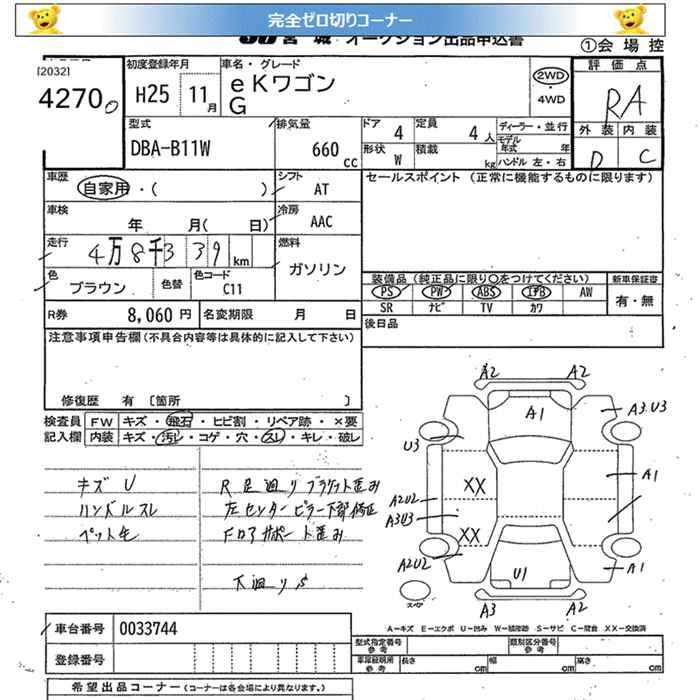 完全ゼロ切りコーナー
宮城 オークション出品申込書
①会場控
[2032]
4270
初度登録年月
H25 11月
車名・グレード
eKワゴン
G
2WD
・
4WD
評価点
RA
外装 内装
D C
型式
DBA-B11W
排気量
660 cc
ドア 4
定員 4人
形状 W
積載 kg
ディーラー・並行
モデル年式 年
ハンドル 左・右
車歴
自家用・( )
シフト
AT
セールスポイント (正常に機能するものに限ります)
車検
年 月( 日)
冷房
AAC
走行
4万8千339km
燃料
ガソリン
色
ブラウン
色替
色コード
C11
装備品 (純正品に限り○をつけてください)
新車保証書
PS PW ABS エアB AW
有・無
SR ナビ TV カワ
R券 8,060円
名変期限 月 日
後日品
注意事項申告欄(不具合内容等は具体的に記入して下さい)
修復歴 有 [箇所 ]
検査員記入欄
FW キズ・飛石・ヒビ割・リペア跡・×要
内装 キズ・汚レ・コゲ・穴・スレ・キレ・破レ
キズ U
ハンドルスレ
ペット毛
R足廻りブラケット歪み
左センターピラー下部修正
Fロアサポート歪み
下廻りS
A2 A2
A1
A3.U3
U3
A1
XX
A2U2
A3U3
XX
A2U2
U1
A1
A3 A2
スペア
A-キズ E-エクボ U-凹み W-補修跡 S-サビ C-腐食 XX-交換済
車台番号 0033744
登録番号
型式指定番号 参考
類別区分番号 参考
車庫証明用 参考
長さ cm 幅 cm 高さ cm
希望出品コーナー (コーナーは各会場により異なります。)